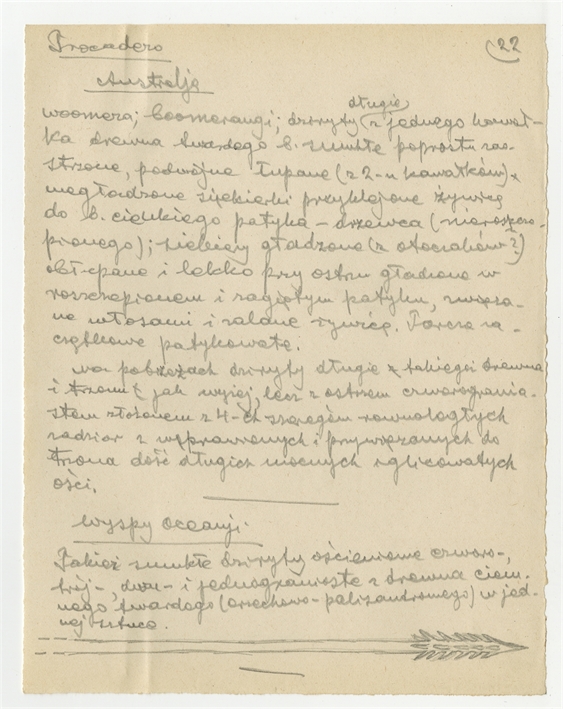 Trocadero
22
Australja
woomera; boomerangi; dziryty (z jednego kawał-
długie
ka drewna twardego b. smukłe poprostu zao-
strzone, podwójne łupane (z 2-u kawałków)
nagładzone siekierki przyklejone żywicą
do b. cienkiego patyka - drzewca (nierozszcze-
pionego); siekiery gładzone (z otoczaków?)
obłupane i lekko przy ostrzu gładzone w
rozszczepionem i zagiętym patyku, związa-
ne włosami i zalane żywicą. Tarcze za-
czątkowe patykowate.
na pobrzeżach dziryty długie z takiegoż drewna
i trzonu jak wyżej, lecz z ostrzem czworogrania-
stem złożonem z 4-ch szeregów równoległych
zadzior z wyprawionych i przywiązanych do
trzona dość długich mocnych iglicowatych
ości.
Wyspy Oceanji.
Takież smukłe dziryty ościeniowe czworo-,
trój-, dwu- i jednograniaste z drewna ciem-
nego twardego (orzechowo-palizandrowego) w jed-
nej sztuce.